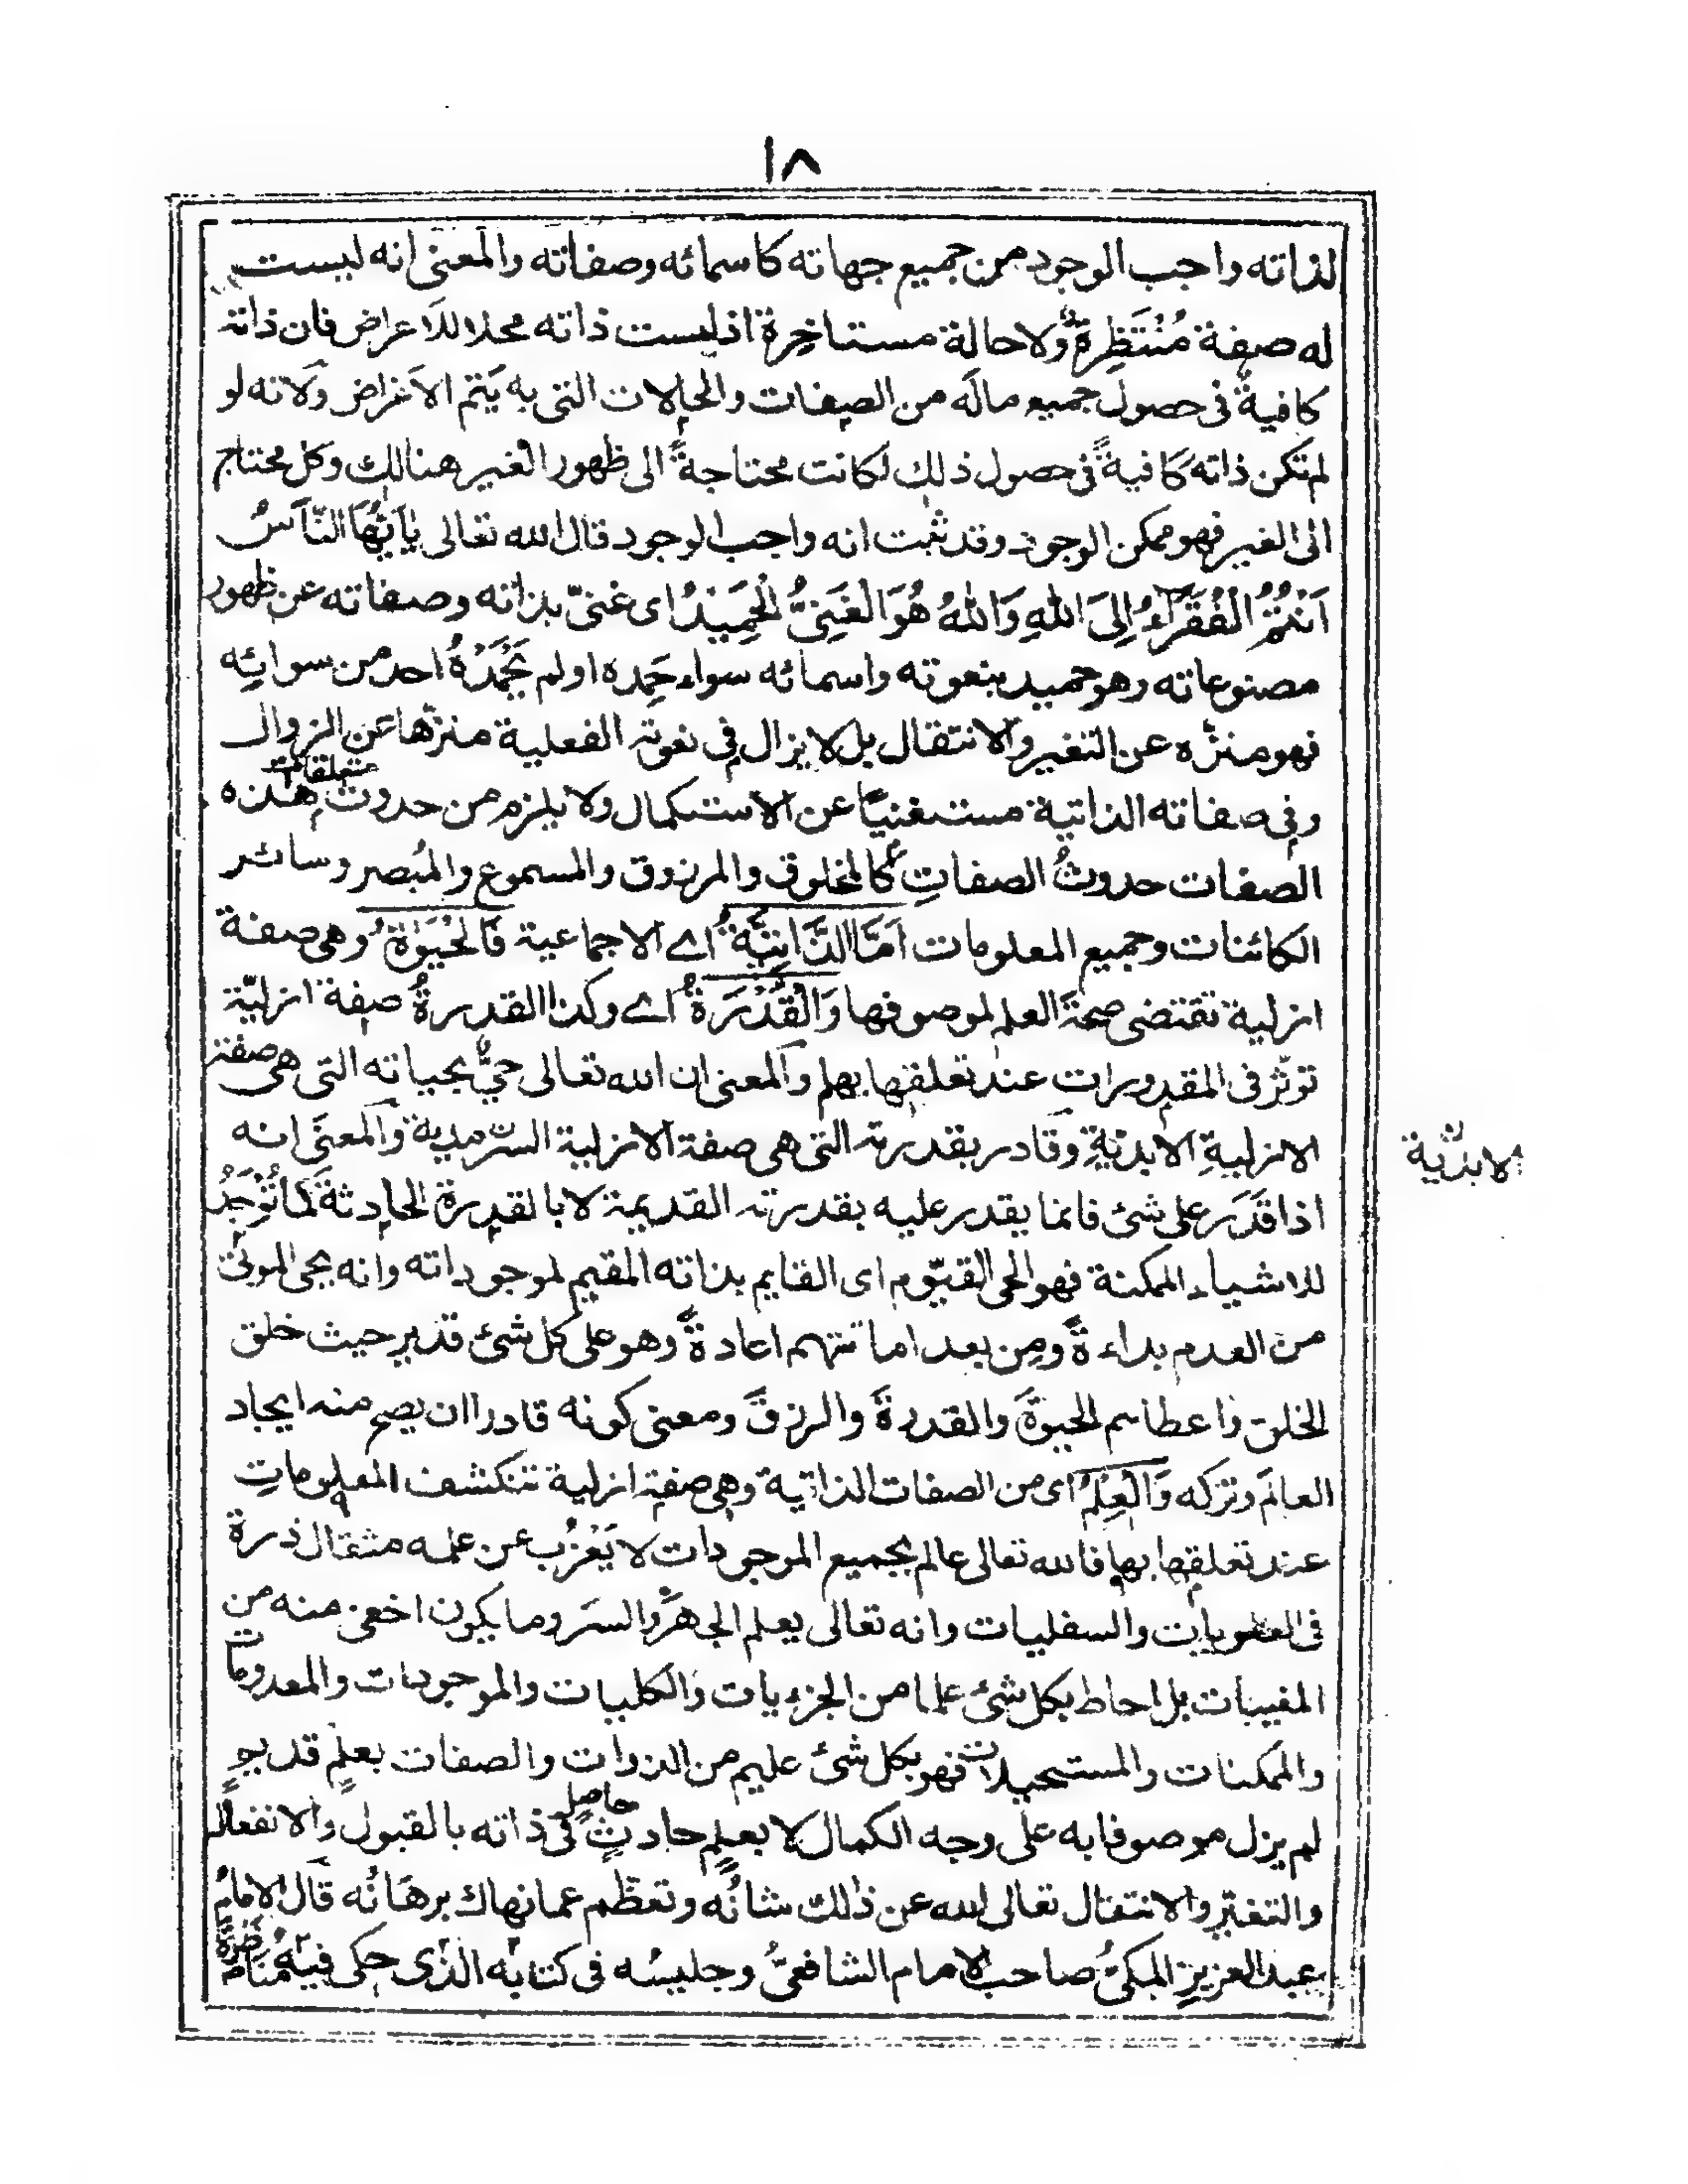 ١٨
لذاته واجب الوجود من جميع جهاته كاسمائه وصفاته والمعنى انه ليست
له صفة مُنْتَظِرةٌ ولا حالة مستاخِرة اذ ليست ذاته محلا للاعراض فان ذاته
كافيةٌ فى حصول جميع ماله من الصفات والحالات التى به يَتم الاغراض ولانه لو
لم تكن ذاته كافيةً فى حصول ذلك لكانت محتاجةً الى ظهور الغير هنالك وكل محتاج
الى الغير فهو ممكن الوجود وقد ثبت انه واجب الوجود قال الله تعالى يٰاَيُّهَا النَّاسُ
اَنْتُمُ الْفُقَرَآءُ اِلَى اللهِ وَاللهُ هُوَ الْغَنِىُّ الْحَمِيْدُ اى غنىّ بذاته وصفاته عن ظهور
مصنوعاته وهو حميد بنعوته واسمائه سواء حَمِده او لم يَحْمَدْهُ احد من سوائِه
فهو منزّه عن التغير والانتقال بل لا يزال فى نعوته الفعلية منزّها عن الزوال
وفى صفاته الذاتية مستغنيًا عن الاستكمال ولا يلزم من حدوث متعلقات هذه
الصفات حدوثُ الصفاتِ كالمخلوق والمرزوق والمسموع والمُبصر وسائر
الكائنات وجميع المعلومات اَمَّا الذَّاتِيَّةُ اے الاجماعية فَالْحَيٰوةُ وهى صفة
ازلية تقتضى صحةَ العلم لموصوفها وَالْقُدْرَةُ اے وكذا القدرةُ صفة ازليّة
توثّر فى المقدورات عند تعلقها بها والمعنى ان الله تعالى حىٌّ بحياته التى هى صفته
الازليةِ الابديّةِ وقادر بقدرته التى هى صفة الازلية السرمدية والمعنَى انه
الابديّة
اذا قَدَرَ على شئ فانما يقدر عليه بقدرته القديمة لا بالقدرة الحادثة كما تُوْجَدُ
للاشياء الممكنة فهو الحى القيّوم اى القايم بذاته المقيم لموجوداته وانه يحى الموتى
من العدم بداءةً ومِن بعد اماتتهم اعادةً وهو على كل شئ قدير حيث خلق
الخلق واعطاهم الحيوةَ والقدرةَ والرزقَ ومعنى كونه قادرا ان يصح منه ايجاد
العالَم وتركه وَالْعِلْمُ اى من الصفات الذاتية وهى صفة ازلية تنكشف المعلوماتِ
عند تعلقها بها فالله تعالى عالم بجميع الموجودات لا يَعْزُب عن علمه مثقال ذرة
فى العلويات والسفليات وانه تعالى يعلم الجهرَ والسرَ وما يكون اخفى منه من
المغيبات بل احاط بكل شئ علما من الجزءيات والكليات والموجودات والمعدومات
والممكنات والمستحيلات فهو بكل شئ عليم من الذوات والصفات بعلمٍ قديمٍ
لم يزل موصوفا به على وجه الكمال لا بعلمٍ حادثٍ حاصلٍ فى ذاته بالقبول والانفعال
والتغيّر والانتقال تعالى الله عن ذلك شانُه وتعظّم عما نهاك برهانُه قال الامامُ
عبد العزيز المكىُّ صاحب الامام الشافعىُّ وجليسُه فى كتابه الذى حكى فيه مناظرة